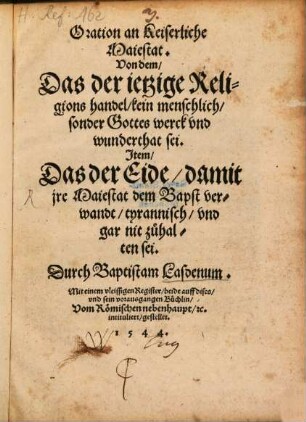 H. Ref. 162
3.
Oration an Keiserliche
Maiestat.
Von dem/
Das der ietzige Reli-
gions handel/kein menschlich/
sonder Gottes werck vnd
wunderthat sei.
Item/
Das der Eide/damit
jre Maiestat dem Bapst ver-
wandt/tyrannisch/vnd
gar nit zůhal-
ten sei.
Durch Baptistam Lasdenum.
Mit einem vleissigen Register/beide auff dises/
vnd sein vorausgangen Büchlin/
Vom Römischen nebenhaupt/ꝛc.
intituliert/gestellet.
1544.